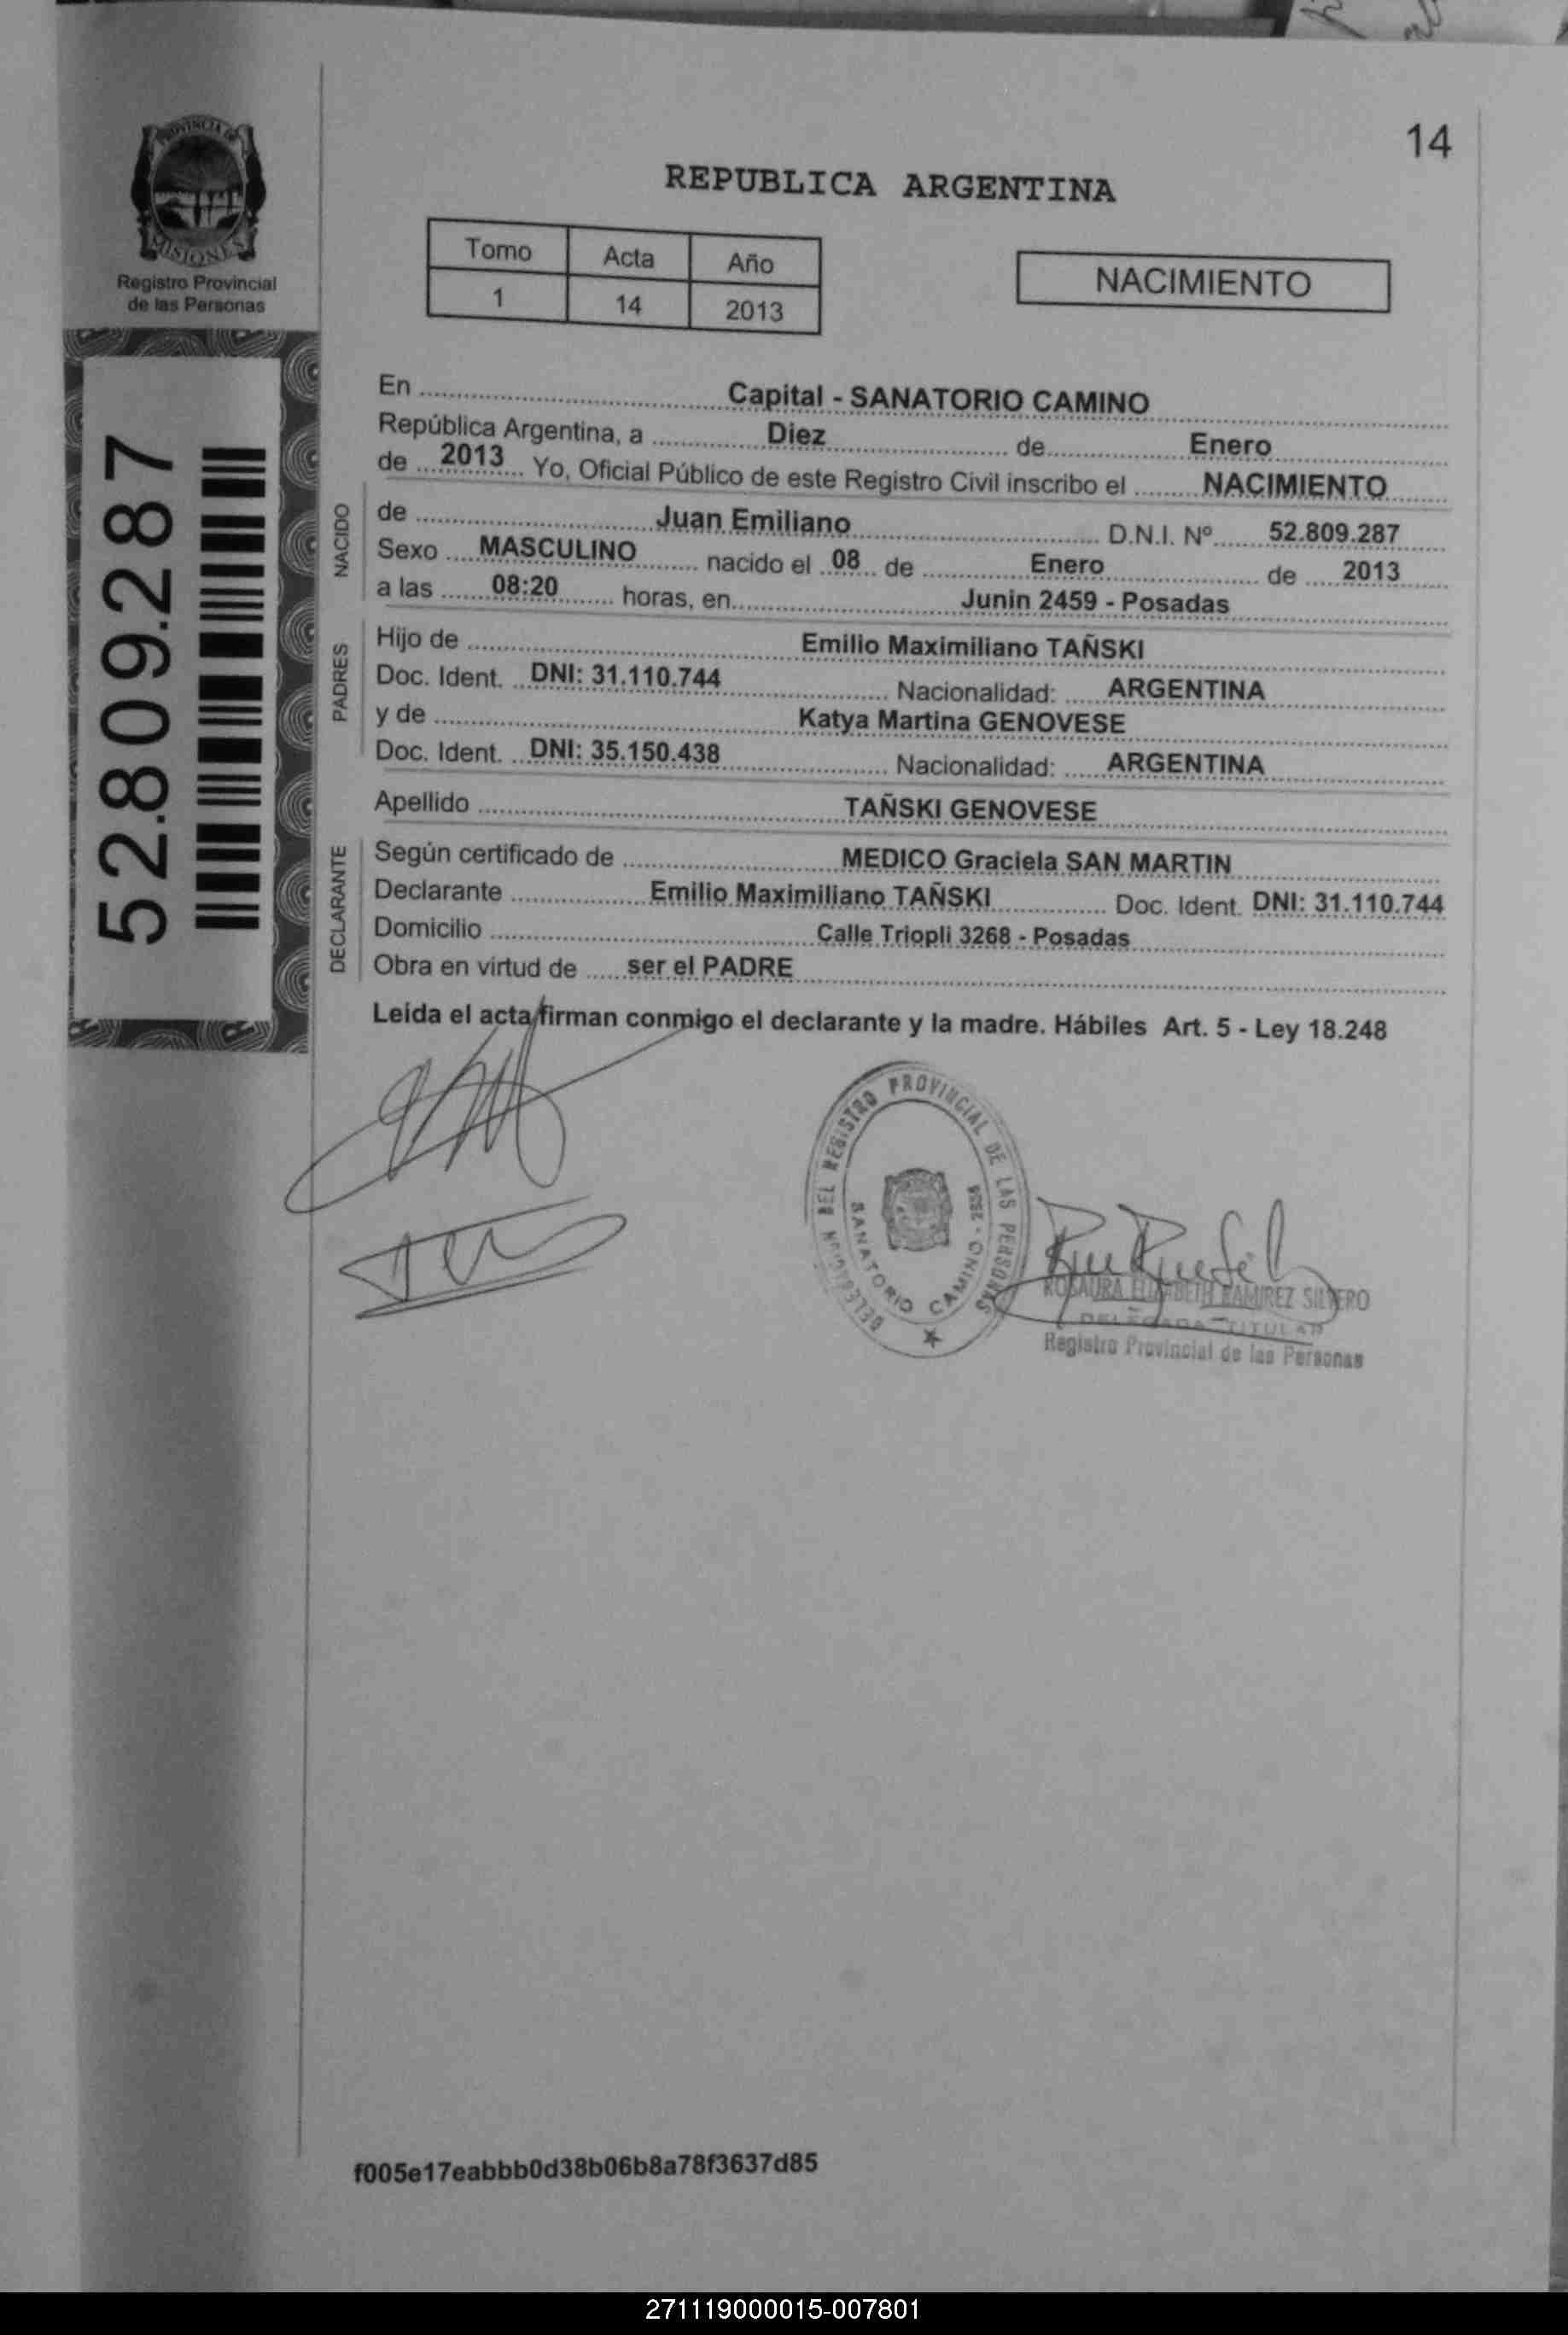 14
PROVINCIA DE
MISIONES
Registro Provincial
de las Personas
REPUBLICA ARGENTINA
Tomo Acta Año
1 14 2013
NACIMIENTO
52.809.287
En ........ Capital - SANATORIO CAMINO
República Argentina, a ........ Diez ........ de ........ Enero
de .... 2013 .... Yo, Oficial Público de este Registro Civil inscribo el ........ NACIMIENTO
NACIDO
de ........ Juan Emiliano ........ D.N.I. Nº ........ 52.809.287
Sexo .... MASCULINO ........ nacido el .. 08 .. de ........ Enero ........ de ..... 2013
a las ....... 08:20 ........ horas, en ........ Junin 2459 - Posadas
PADRES
Hijo de ........ Emilio Maximiliano TAÑSKI
Doc. Ident. ... DNI: 31.110.744 ........ Nacionalidad: ..... ARGENTINA
y de ........ Katya Martina GENOVESE
Doc. Ident. ... DNI: 35.150.438 ........ Nacionalidad: ..... ARGENTINA
Apellido ........ TAÑSKI GENOVESE
DECLARANTE
Según certificado de ........ MEDICO Graciela SAN MARTIN
Declarante ........ Emilio Maximiliano TAÑSKI ........ Doc. Ident. DNI: 31.110.744
Domicilio ........ Calle Triopli 3268 - Posadas
Obra en virtud de ...... ser el PADRE
Leida el acta firman conmigo el declarante y la madre. Hábiles Art. 5 - Ley 18.248
DEL REGISTRO PROVINCIAL DE LAS PERSONAS
SANATORIO CAMINO
ROSAURA ELIZABETH RAMIREZ SILVERO
DELEGADA TITULAR
Registro Provincial de las Personas
f005e17eabbb0d38b06b8a78f3637d85
271119000015-007801